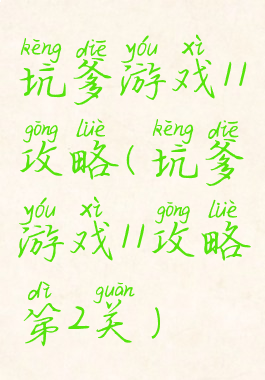 kēng diē yóu xì
坑爹游戏11
gōng lüè kēng diē
攻略(坑爹
yóu xì gōng lüè
游戏11攻略
dì guān
第2关)